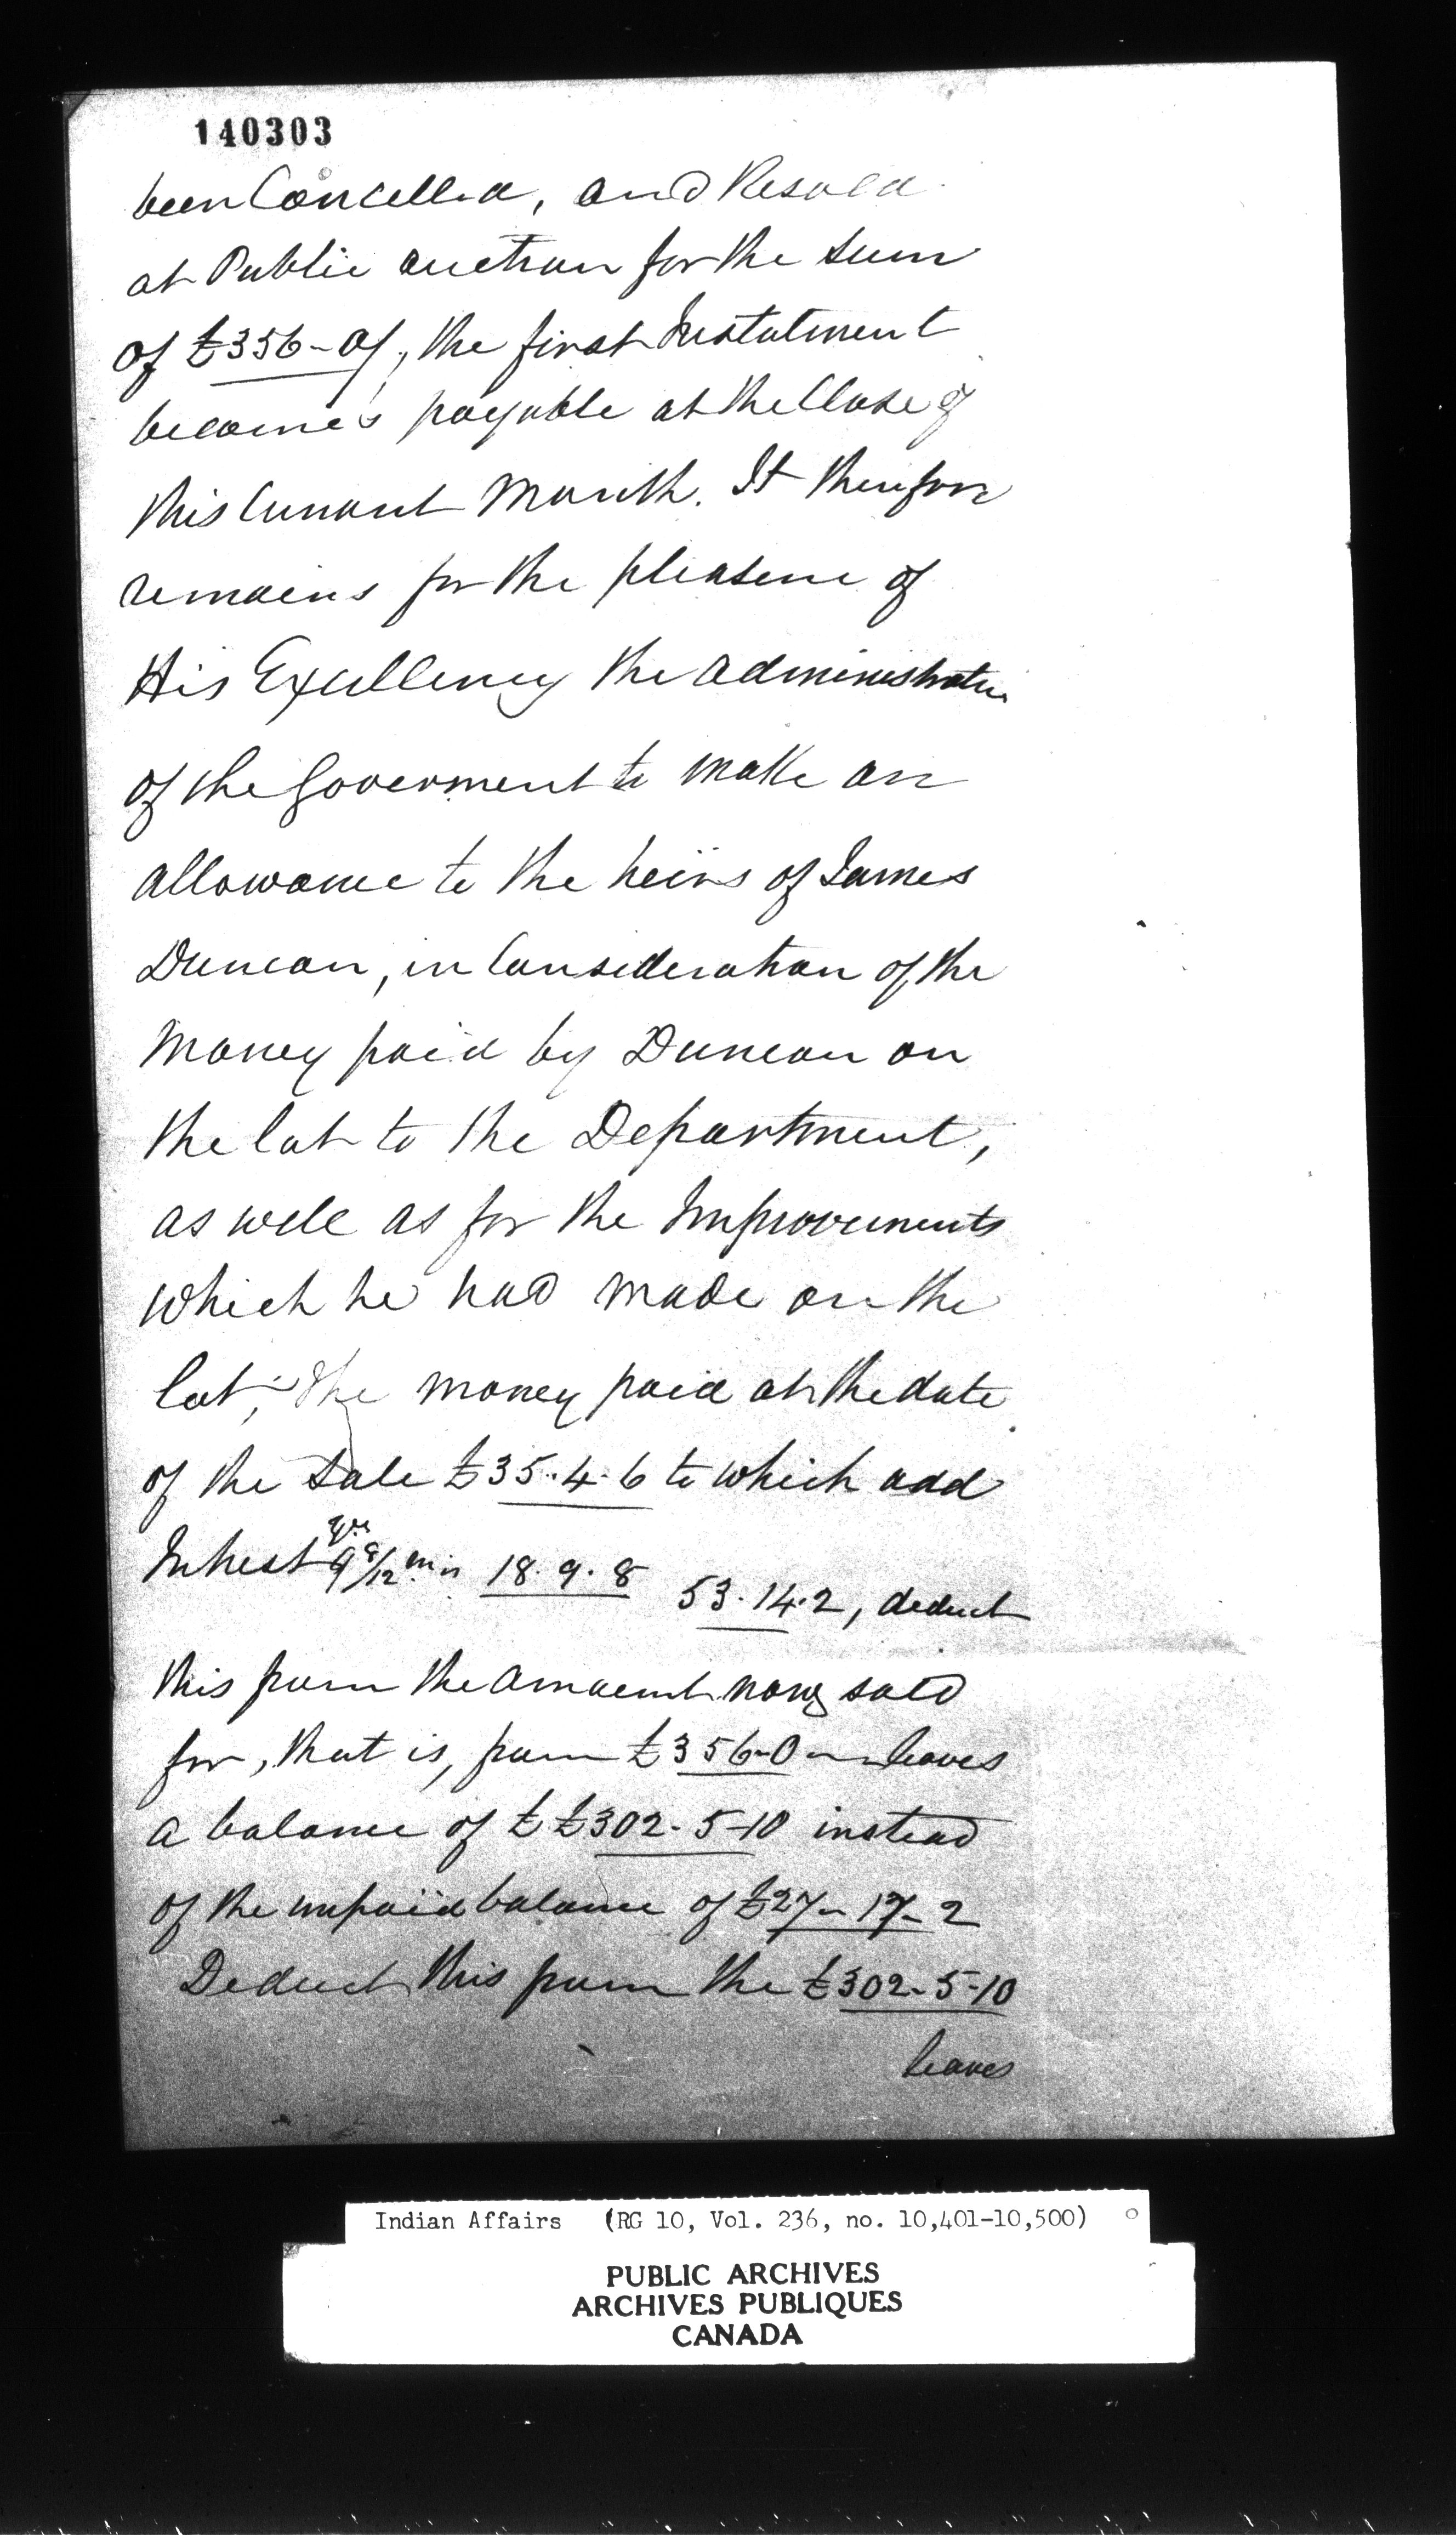 140303
been Cancelled, and Resold
at Public auction for the sum
of £356-0/, the first Instalment
becomes payable at the Close of
this Current Month. It therefore
remains for the pleasure of
His Excellency the Administrator
of the Goverment to make an
allowance to the heirs of James
Duncan, in Consideration of the
Money paid by Duncan on
the lot to the Department,
as well as for the Improvements
which he had made on the
lot; The money paid at the date
of the Sale £35.4.6 to which add
Interest 9 yrs 9/12 ms 18.9.8 53.14.2, deduct
this from the amount now sold
for, that is, from £356-0 leaves
a balance of £ £302-5-10 instead
of the unpaid balance of £27-17-2
Deduct this from the £302-5-10
leaves
Indian Affairs (RG 10, Vol. 236, no. 10,401-10,500)
PUBLIC ARCHIVES
ARCHIVES PUBLIQUES
CANADA